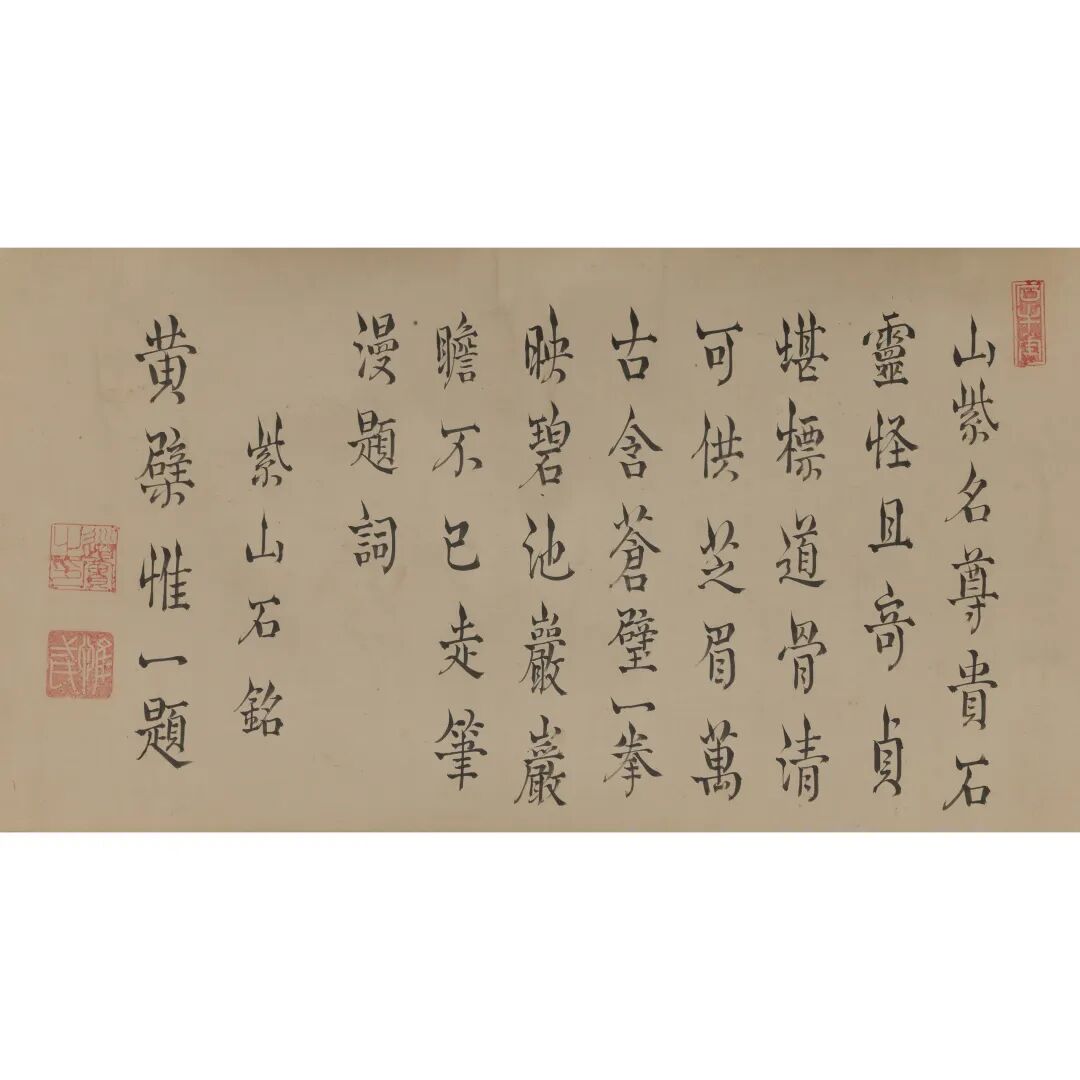 山紫名尊貴石
靈怪且奇貞
堪標道骨清
可供芝眉萬
古含蒼璧一拳
映碧池巖巖
瞻不已走筆
漫題詞
紫山石銘
黄檗惟一題